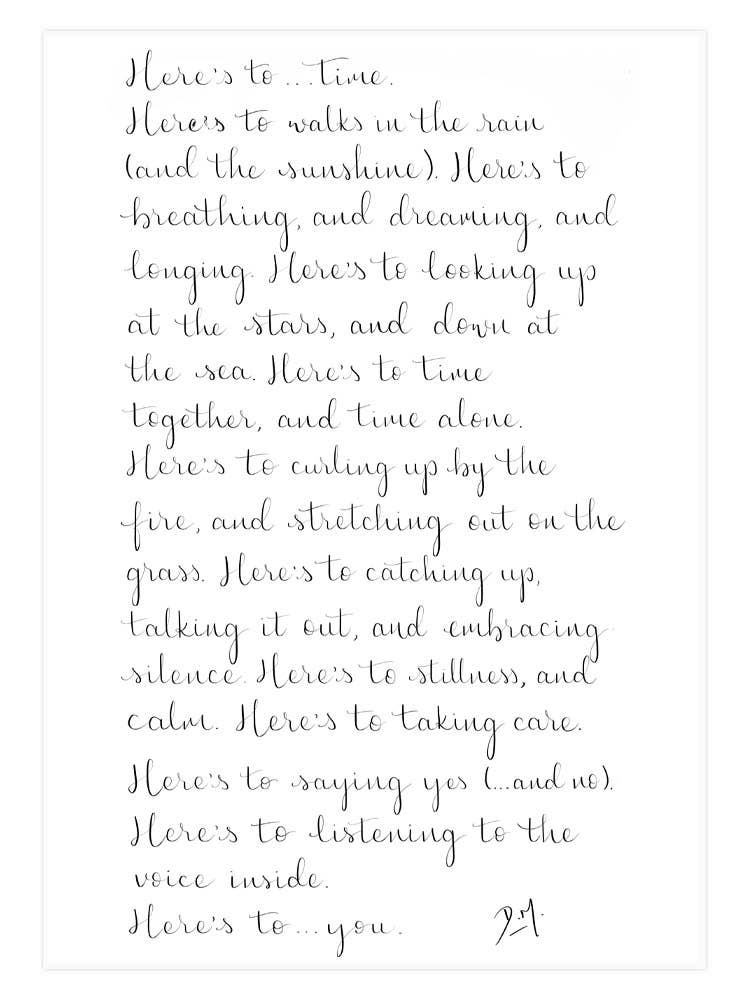 Here's to...time.
Here's to walks in the rain
(and the sunshine). Here's to
breathing, and dreaming, and
longing. Here's to looking up
at the stars, and down at
the sea. Here's to time
together, and time alone.
Here's to curling up by the
fire, and stretching out on the
grass. Here's to catching up,
talking it out, and embracing
silence. Here's to stillness, and
calm. Here's to taking care.
Here's to saying yes (...and no).
Here's to listening to the
voice inside.
Here's to...you. D.M.